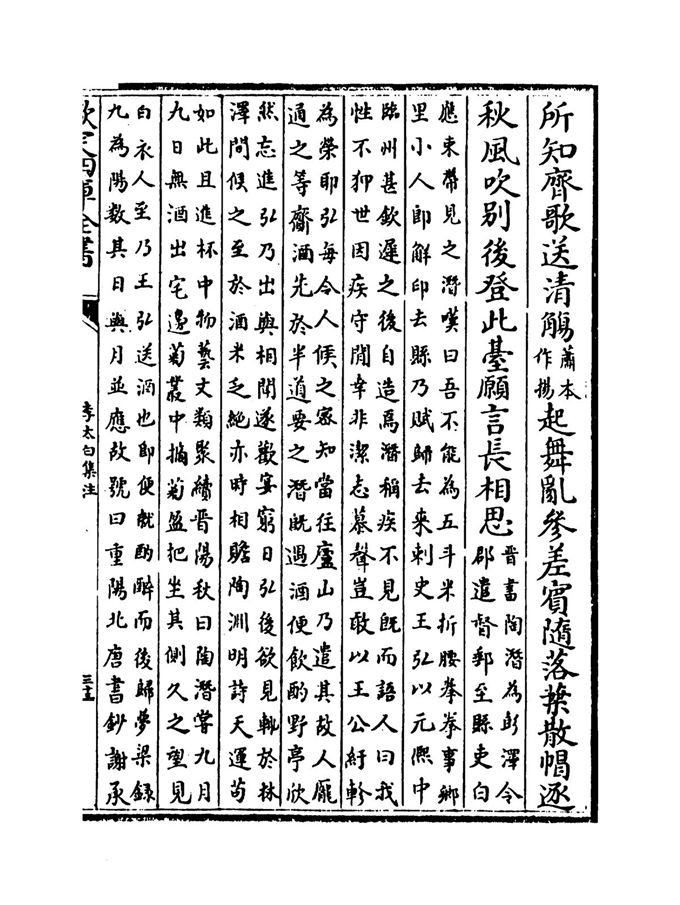 所知齊歌送清觴
蕭本
作揚
起舞亂參差賓隨落葉散帽逐
秋風吹别後登此臺願言長相思
晉書陶潛為彭澤令
郡遣督郵至縣吏白
應束帶見之潛嘆曰吾不能為五斗米折腰拳拳事鄉
里小人即解印去縣乃賦歸去来刺史王弘以元熙中
臨州甚欽遲之後自造焉潛稱疾不見既而語人曰我
性不狎世因疾守閒幸非潔志慕聲豈敢以王公紆軫
為榮耶弘每令人候之密知當往廬山乃遣其故人龐
通之等齎酒先於半道要之潛既遇酒便飲酌野亭欣
然忘進弘乃出與相聞遂歡宴窮日弘後欲見輒於林
澤間候之至於酒米乏絶亦時相贍陶淵明詩天運茍
如此且進杯中物藝文類聚續晉陽秋曰陶潛嘗九月
九日無酒出宅邊菊叢中摘菊盈把坐其側久之望見
白衣人至乃王弘送酒也即便就酌醉而後歸夢梁録
九為陽數其日與月並應故號曰重陽北唐書鈔謝承
欽定四庫全書
李太白集注
三十五